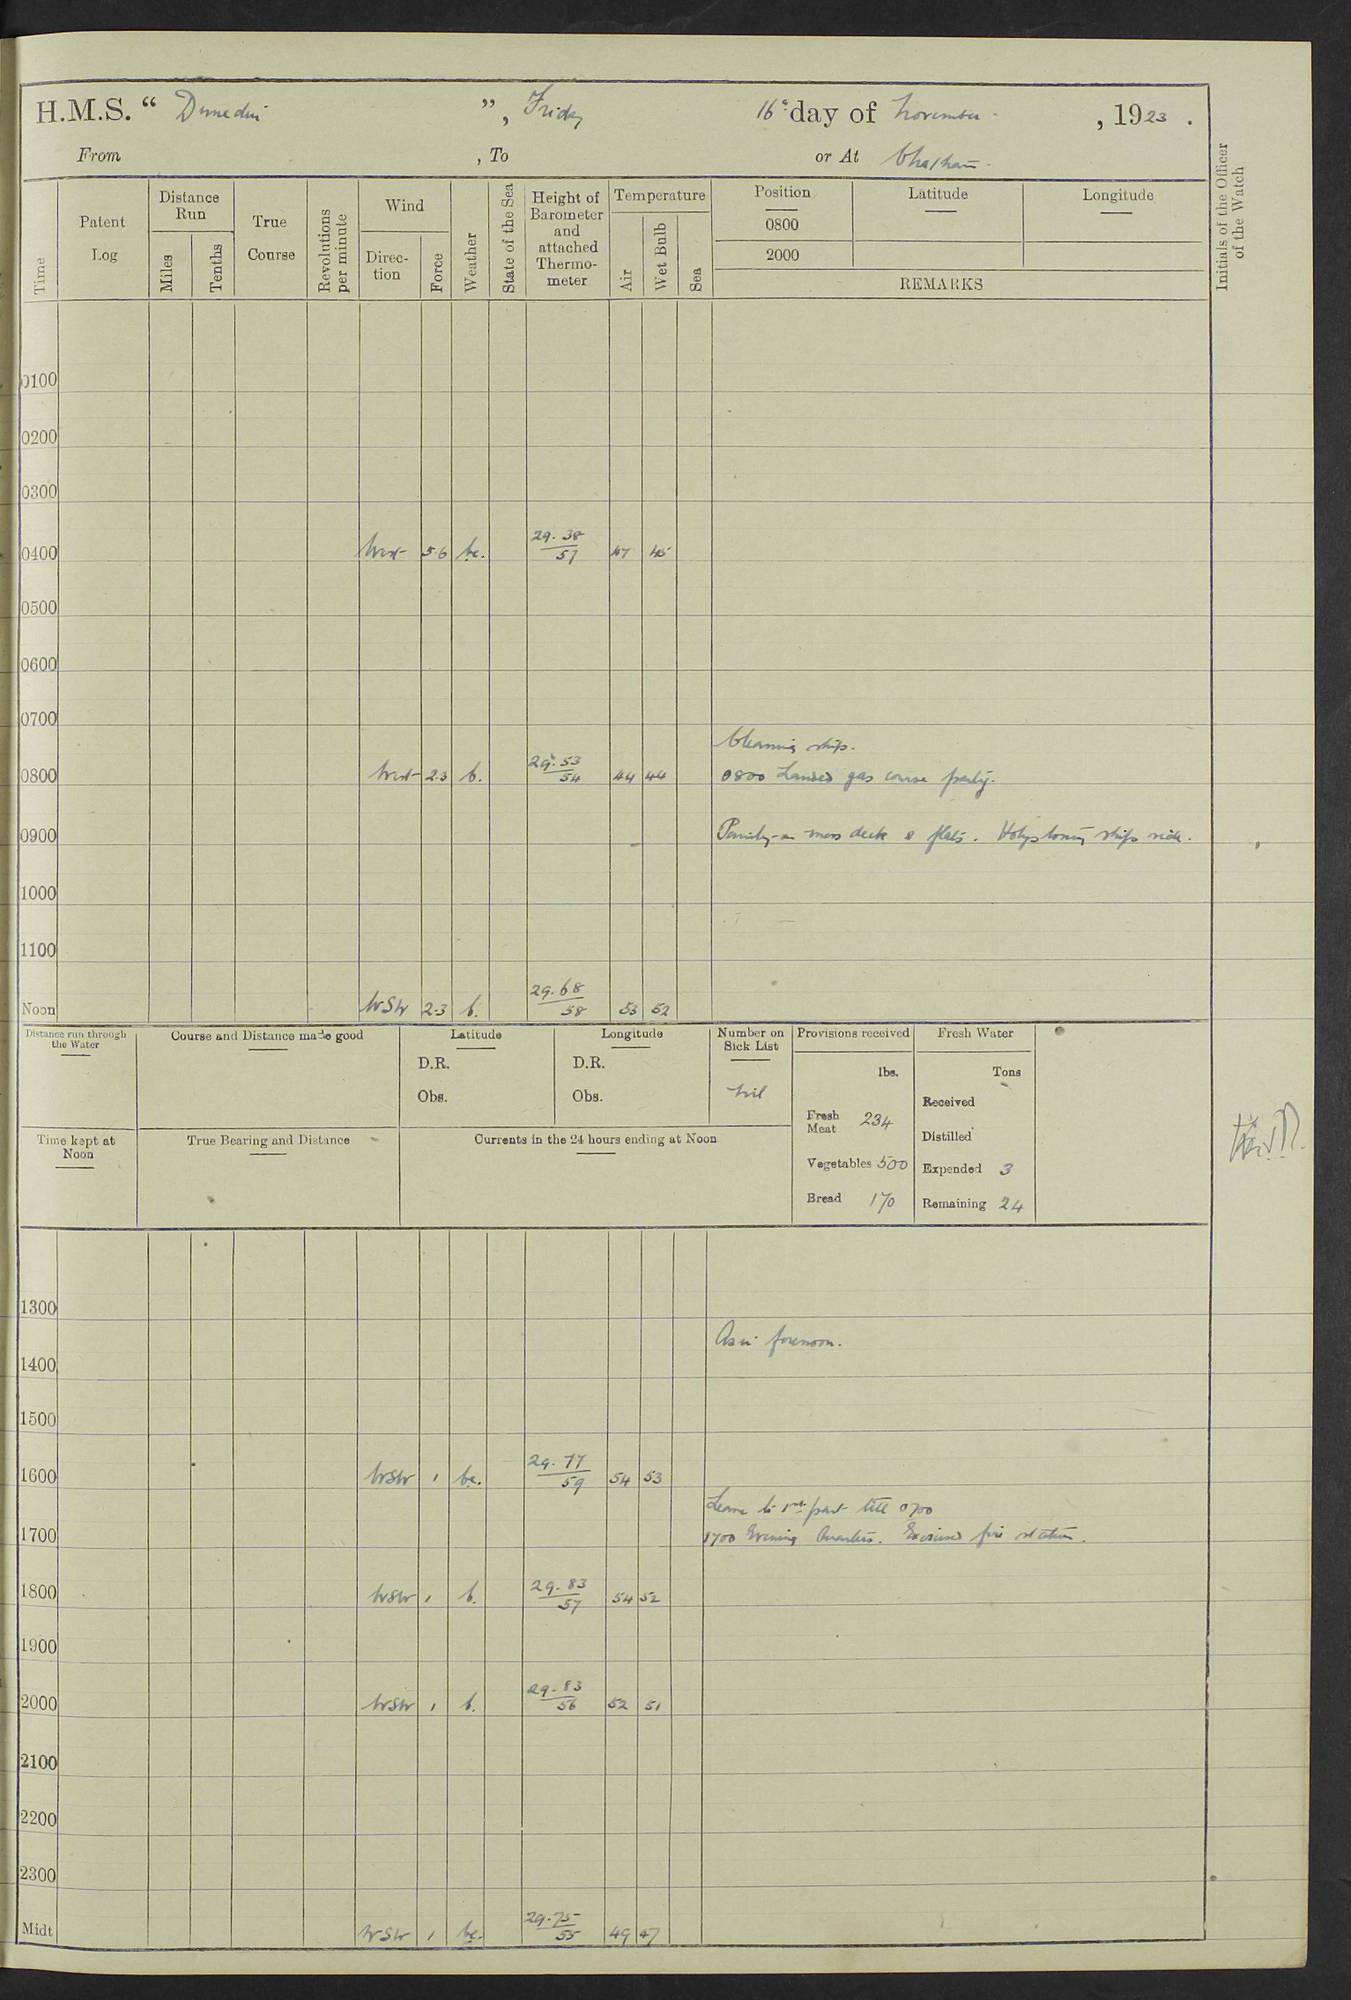 H.M.S. “ Dunedin ”, Friday 16th day of November, 1923.
From , To or At Chatham.
Time
Patent Log
Distance Run
Miles
Tenths
True Course
Revolutions per minute
Wind
Direction
Force
Weather
State of the Sea
Height of Barometer and attached Thermometer
Temperature
Air
Wet Bulb
Sea
Position Latitude Longitude
0800
2000
REMARKS
Initials of the Officer of the Watch
0100
0200
0300
0400 West 5-6 bc. 29.38/57 47 45
0500
0600
0700
Cleaning ship.
0800 West 2-3 b. 29.53/54 44 44 0800 Landed gas course party.
0900 Painting on mess deck & flats. Holystoning ships side.
1000
1100
Noon WSW 2-3 b. 29.68/58 53 52
Distance run through the Water
Course and Distance made good
Latitude
D.R.
Obs.
Longitude
D.R.
Obs.
Number on Sick List
Nil
Provisions received
lbs.
Fresh Meat 234
Vegetables 500
Bread 170
Fresh Water
Tons
Received
Distilled
Expended 3
Remaining 24
Time kept at Noon
True Bearing and Distance
Currents in the 24 hours ending at Noon
1300
As in forenoon.
1400
1500
1600 WSW 1 bc. 29.77/59 54 53
Leave to 1st part till 0700
1700 1700 Evening Quarters. Exercised fire stations.
1800 WSW 1 b. 29.83/57 54 52
1900
2000 WSW 1 b. 29.83/56 52 51
2100
2200
2300
Midt WSW 1 bc. 29.75/55 49 47